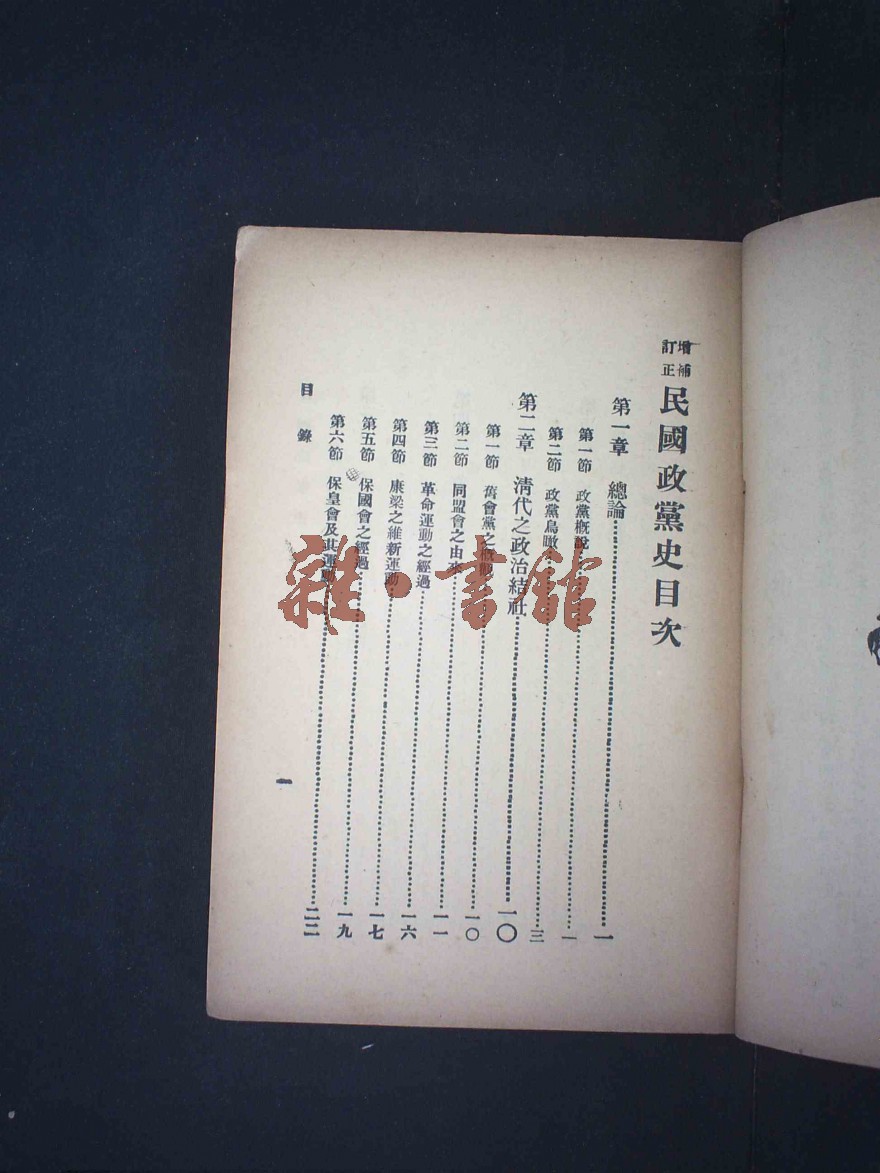 增補訂正 民國政黨史目次
第一章 總論……一
第一節 政黨概說……一
第二節 政黨鳥瞰……三
第二章 清代之政治結社……一〇
第一節 舊會黨之概……一〇
第二節 同盟會之由來……一一
第三節 革命運動之經過……一六
第四節 康梁之維新運動……一七
第五節 保國會之經過……一九
第六節 保皇會及其運動……二二
目錄
一
雜·書館